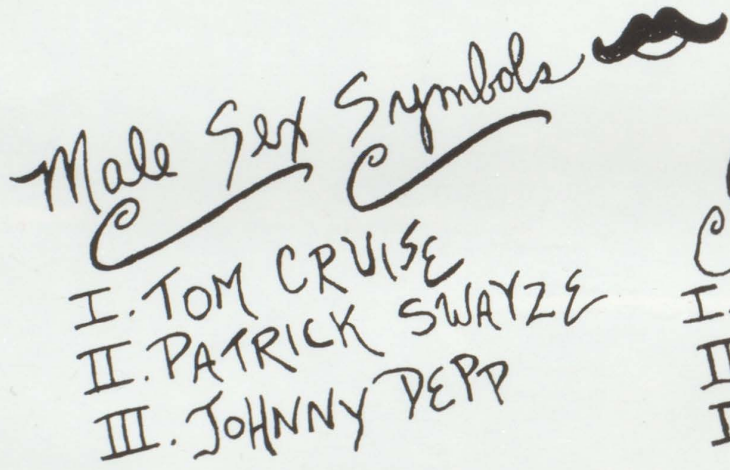 Male Sex Symbols
I. TOM CRUISE
II. PATRICK SWAYZE
III. JOHNNY DEPP
I.